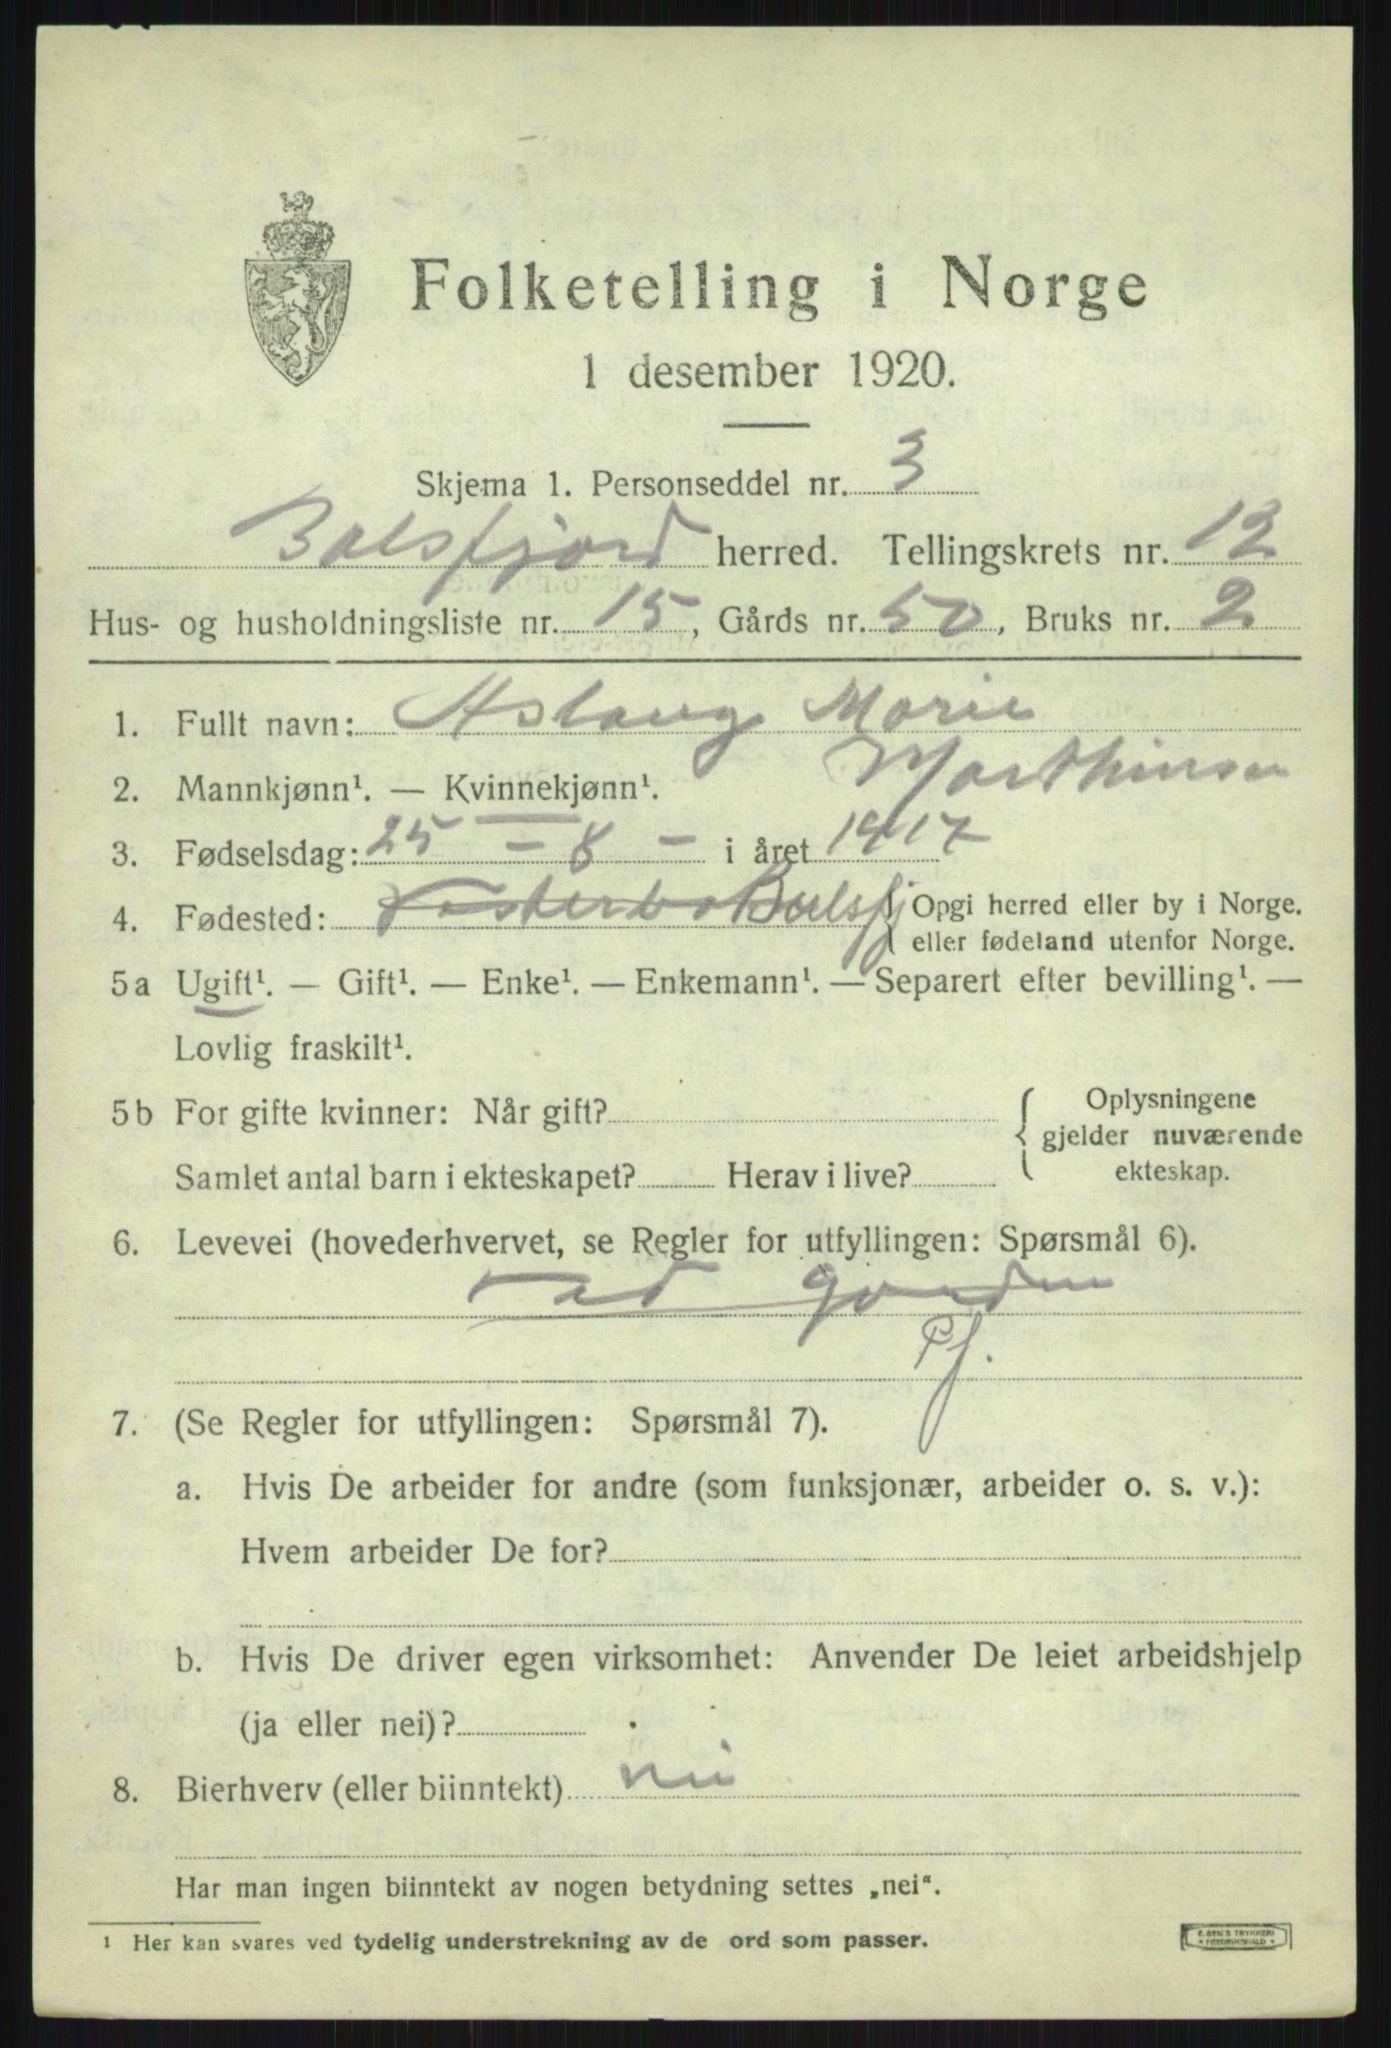 Folketelling i Norge
1 desember 1920.
Skjema 1. Personseddel nr. 3
Balsfjord herred. Tellingskrets nr. 12
Hus- og husholdningsliste nr. 15, Gårds nr. 50, Bruks nr. 2
1. Fullt navn: Aslaug Marie
Marthinsen
2. Mannkjønn¹. — Kvinnekjønn¹.
3. Fødselsdag: 25 - 8 - i året 1917
4. Fødested: Balsfj { Opgi herred eller by i Norge.
eller fødeland utenfor Norge.
5a Ugift¹. — Gift¹. — Enke¹. — Enkemann¹. — Separert efter bevilling¹. —
Lovlig fraskilt¹.
5b For gifte kvinner: Når gift? { Oplysningene
gjelder nuværende
ekteskap.
Samlet antal barn i ekteskapet? Herav i live?
6. Levevei (hovederhvervet, se Regler for utfyllingen: Spørsmål 6).
7. (Se Regler for utfyllingen: Spørsmål 7).
a. Hvis De arbeider for andre (som funksjonær, arbeider o. s. v.):
Hvem arbeider De for?
b. Hvis De driver egen virksomhet: Anvender De leiet arbeidshjelp
(ja eller nei)?
8. Bierhverv (eller biinntekt) nei
Har man ingen biinntekt av nogen betydning settes „nei“.
¹ Her kan svares ved tydelig understrekning av de ord som passer.